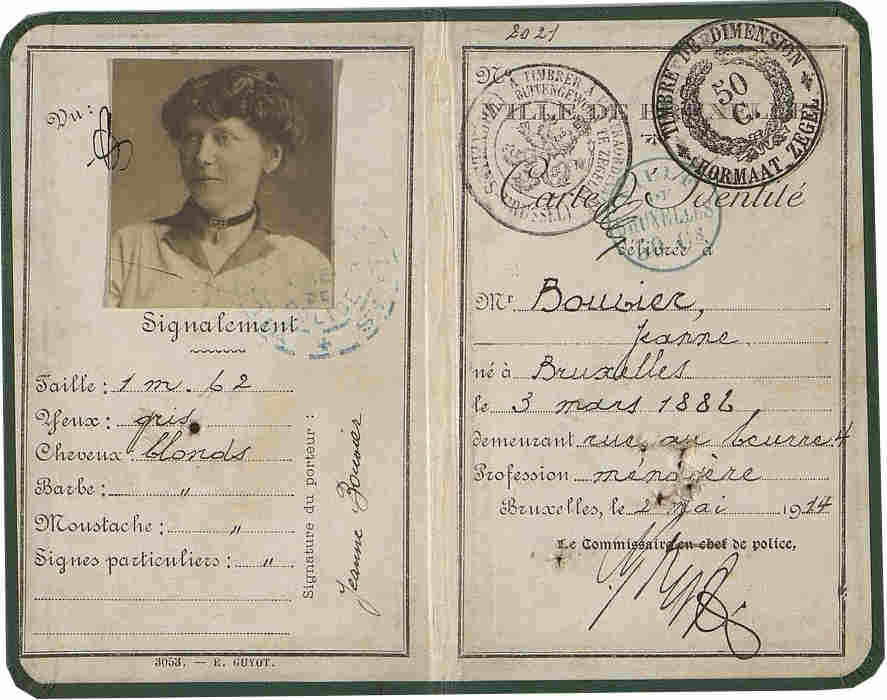 Vu :
Signalement
Taille : 1 m. 62
Yeux : gris
Cheveux blonds
Barbe : "
Moustache : "
Signes particuliers : "
Signature du porteur :
Jeanne Bouvier
3053. — E. GUYOT.
2021
N°
VILLE DE BRUXELLES
TIMBRE DE DIMENSION
50
C.
FORMAAT ZEGEL
Carte d'Identité
VILLE
DE
BRUXELLES
délivrée à
Mr Bouvier,
Jeanne
né à Bruxelles
le 3 mars 1882
demeurant rue au beurre 4
Profession ménagère
Bruxelles, le 2 mai 1914
Le Commissaire en chef de police,